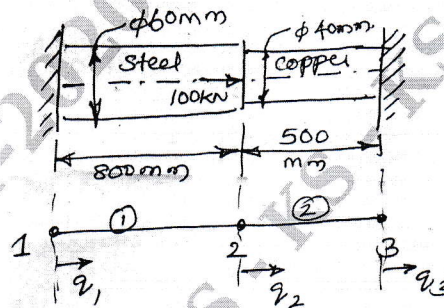 ϕ60mm
ϕ40mm
Steel
copper
100KN
800mm
500
mm
①
②
1
2
3
q1
q2
q3